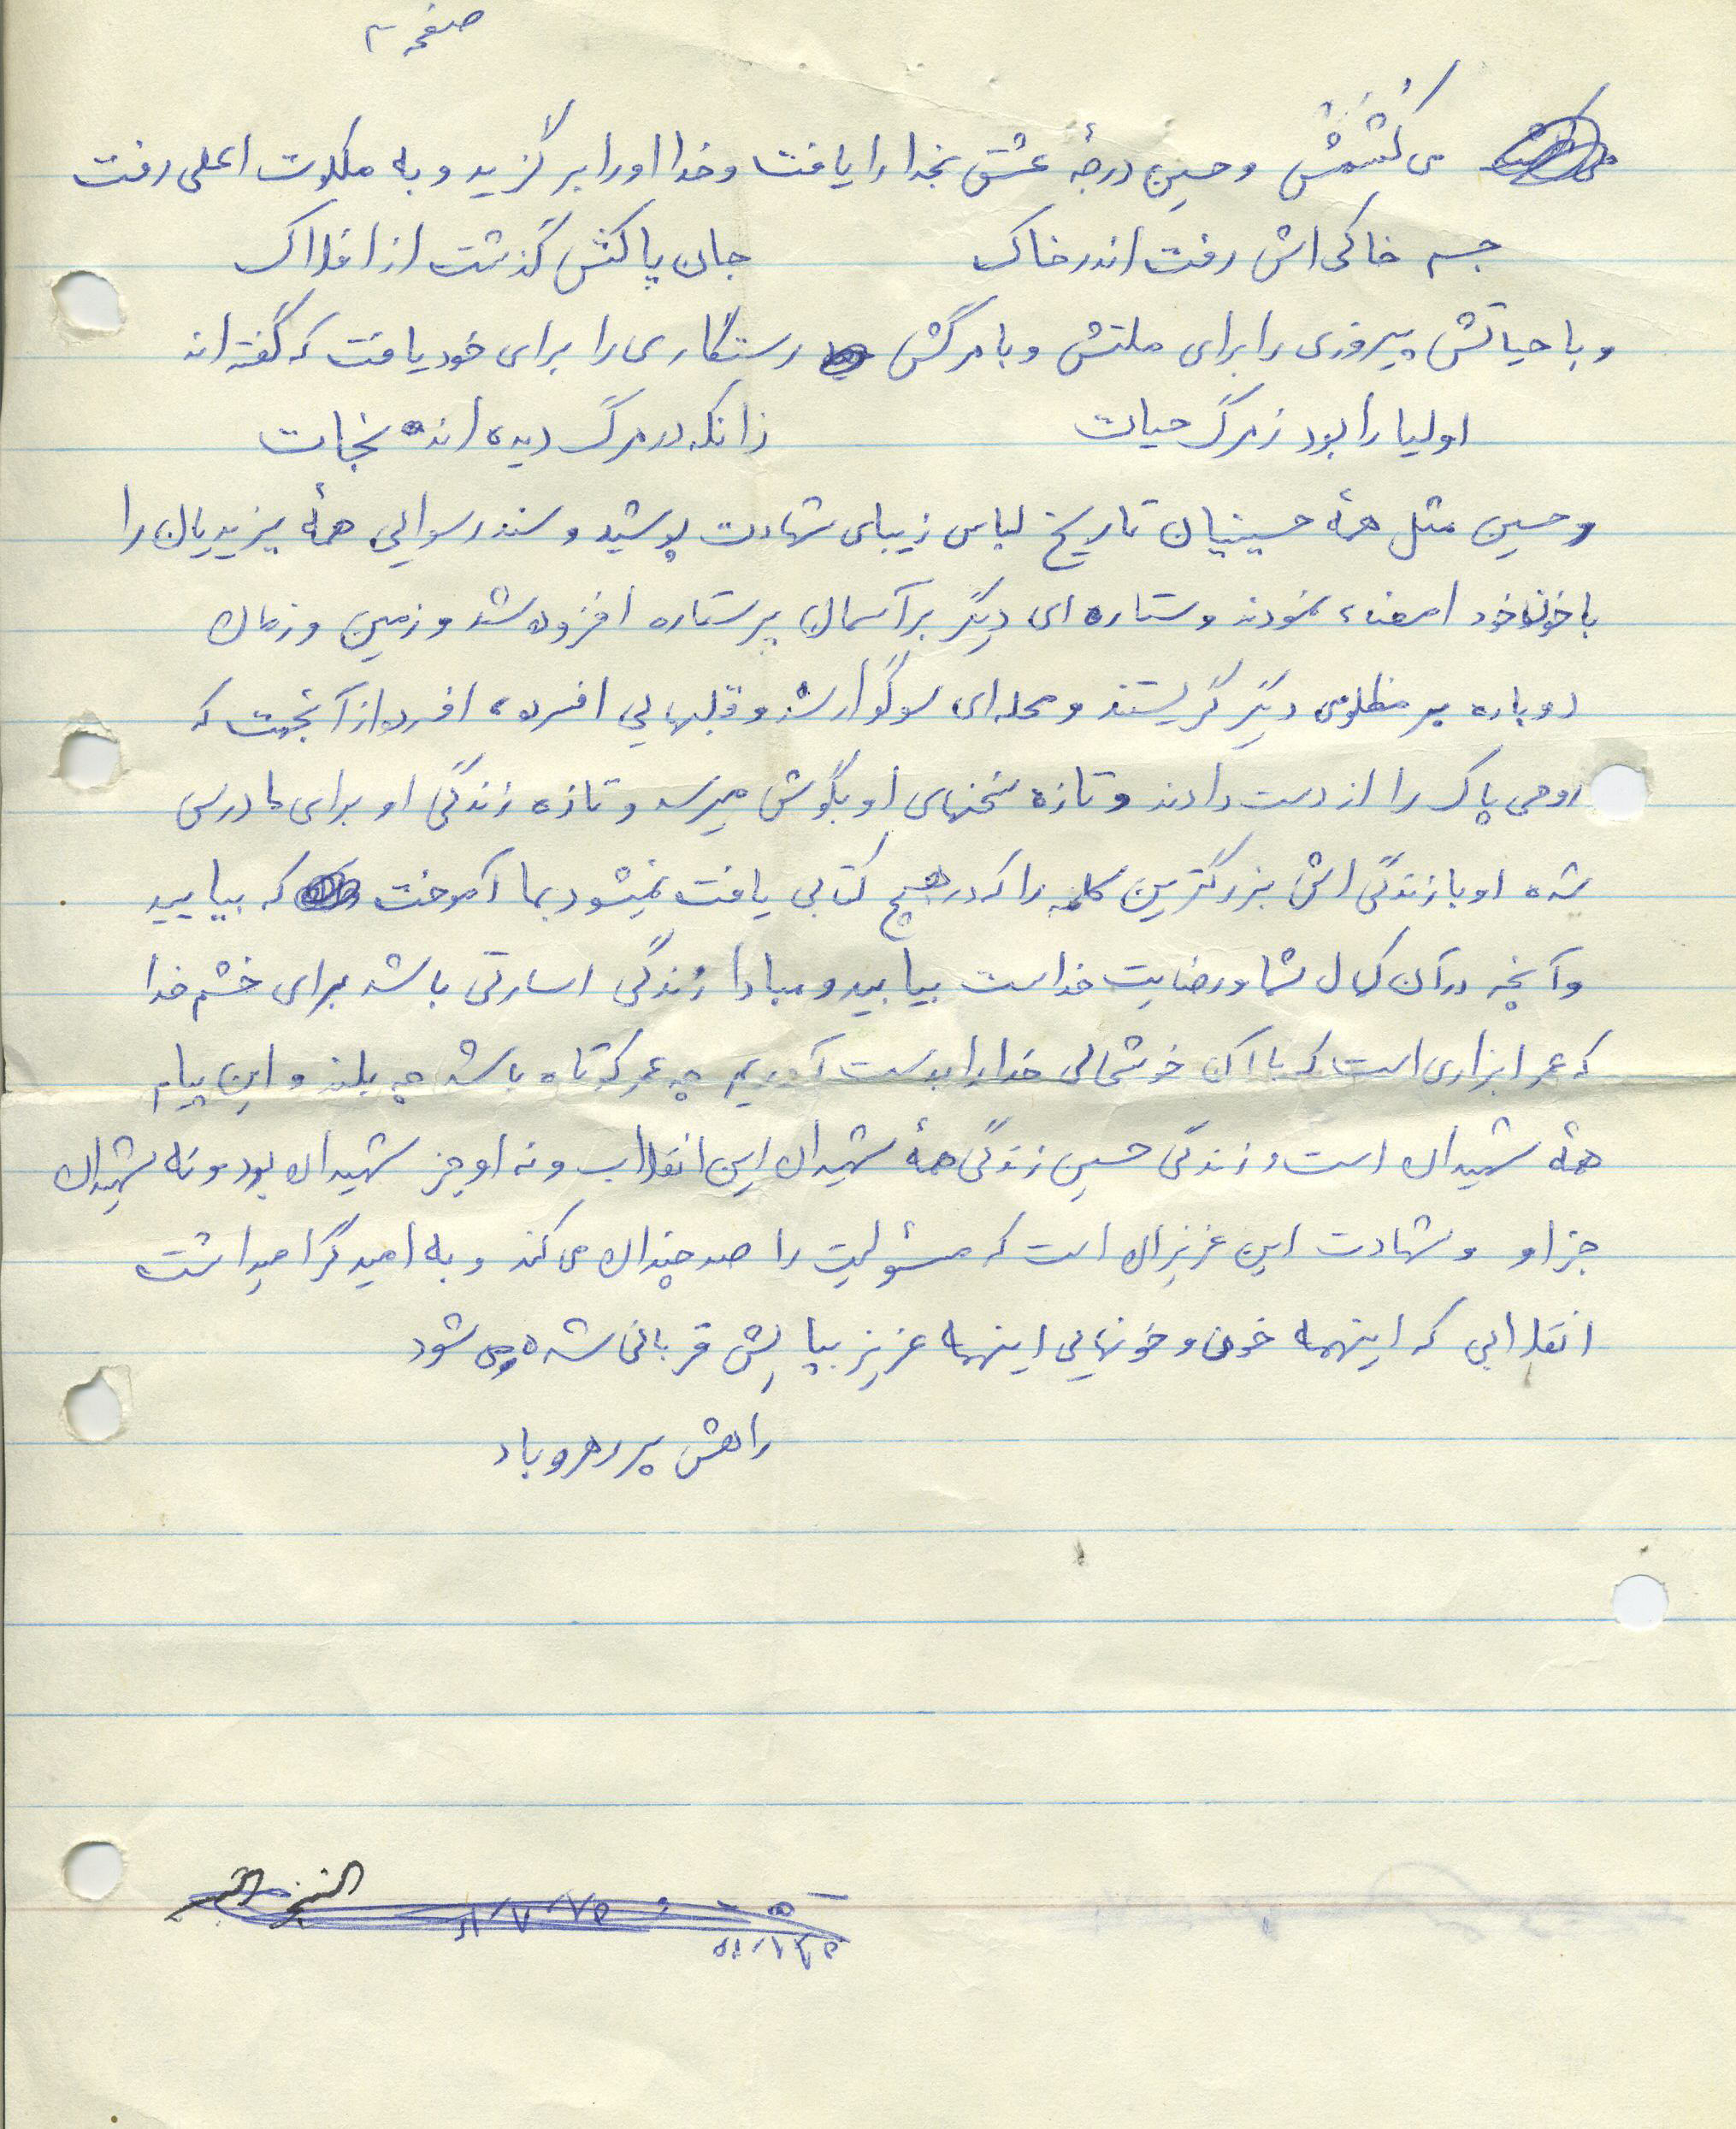 صفحه ۲
می کُشَمَش و حسین درجهٔ عشق بخدا را یافت و خدا او را برگزید و به ملکوت اعلی رفت
جسم خاکی اش رفت اندر خاک جان پاکش گذشت از افلاک
و با حیاتش پیروزی را برای ملتش و با مرگش رستگاری را برای خود یافت که گفته اند
اولیا را بود ز مرگ حیات زانکه در مرگ دیده اند نجات
و حسین مثل همهٔ حسینیان تاریخ لباس زیبای شهادت پوشید و سند رسوایی همهٔ یزیدیان را
با خون خود امضاء نمودند و ستاره ای دیگر بر آسمان پر ستاره افزوده شد و زمین و زمان
دوباره بر مظلومی دیگر گریستند و محله ای سوگوار شد و قلبهایی افسرده افسرده از آنجهت که
روحی پاک را از دست دادند و تازه سخنهای او بگوش میرسد و تازه زندگی او برای ما درسی
شده او با زندگی اش بزرگترین کلمه را که در هیچ کتابی یافت نمیشود بما آموخت که بیایید
و آنچه در آن کمال شما و رضایت خداست بیابید و مبادا زندگی اسارتی باشد برای خشم خدا
که عمر ابزاری است که با آن خوشحالی خدا را بدست آوریم چه عمر کوتاه باشد چه بلند و این پیام
همهٔ شهیدان است و زندگی حسین زندگی همهٔ شهیدان این انقلاب و نه او جز شهیدان بود و نه شهیدان
جز او و شهادت این عزیزان است که مسئولیت را صد چندان می کند و به امید گرامیداشت
انقلابی که اینهمه خون و خونهایی اینهمه عزیز بپایش قربانی شده می شود
راهش پر رهرو باد